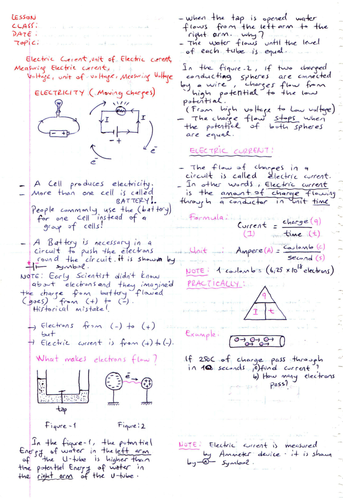 LESSON
CLASS:
DATE:
TOPIC:
Electric Current, unit of Electric current,
Measuring Electric Current,
Voltage, unit of voltage, Measuring Voltage
ELECTRICITY (Moving Charges)
I
I
+
-
e⁻
e⁻
- A Cell produces electricity.
- More than one cell is called
BATTERY!.
People commonly use the (battery)
for one cell instead of a
group of cells!
- A Battery is necessary in a
circuit to push the electrons
round the circuit. it is shown by
symbol.
NOTE: Early Scientist didn't know
about electrons and they imagined
the charge from battery flowed
(goes) from (+) to (-).
Historical mistake!
→ Electrons from (-) to (+)
but
→ Electric current is from (+) to (-).
What makes electrons flow?
tap
e⁻
Figure-1
Figure:2
In the figure-1, the potential
Energy of water in the left arm
of the U-tube is higher than
the potential Energy of water in
the right arm of the U-tube.
- When the tap is opened water
flows from the left arm to the
right arm. why?
- The water flows until the level
of each tube is equal.
In the figure.2, if two charged
conducting spheres are connected
by a wire, charges flow from
high potential to the low
potential.
(From high voltage to low voltage)
- The charge flow stops when
the potential of both spheres
are equal.
ELECTRIC CURRENT:
- The flow of charges in a
circuit is called electric current.
- In other words, Electric current
is the amount of charge flowing
through a conductor in unit time
Formula:
Current = charge (q)
(I) time (t)
Unit : Ampere (A) = Coulomb (C)
second (s)
NOTE: 1 coulomb = (6,25 × 10¹⁸ electrons)
PRACTICALLY:
q
I t
Example:
If 250C of charge pass through
in 10 seconds a) find current?
b) How many electrons
pass?
NOTE: Electric current is measured
by Ammeter device. it is shown
by -A- symbol.